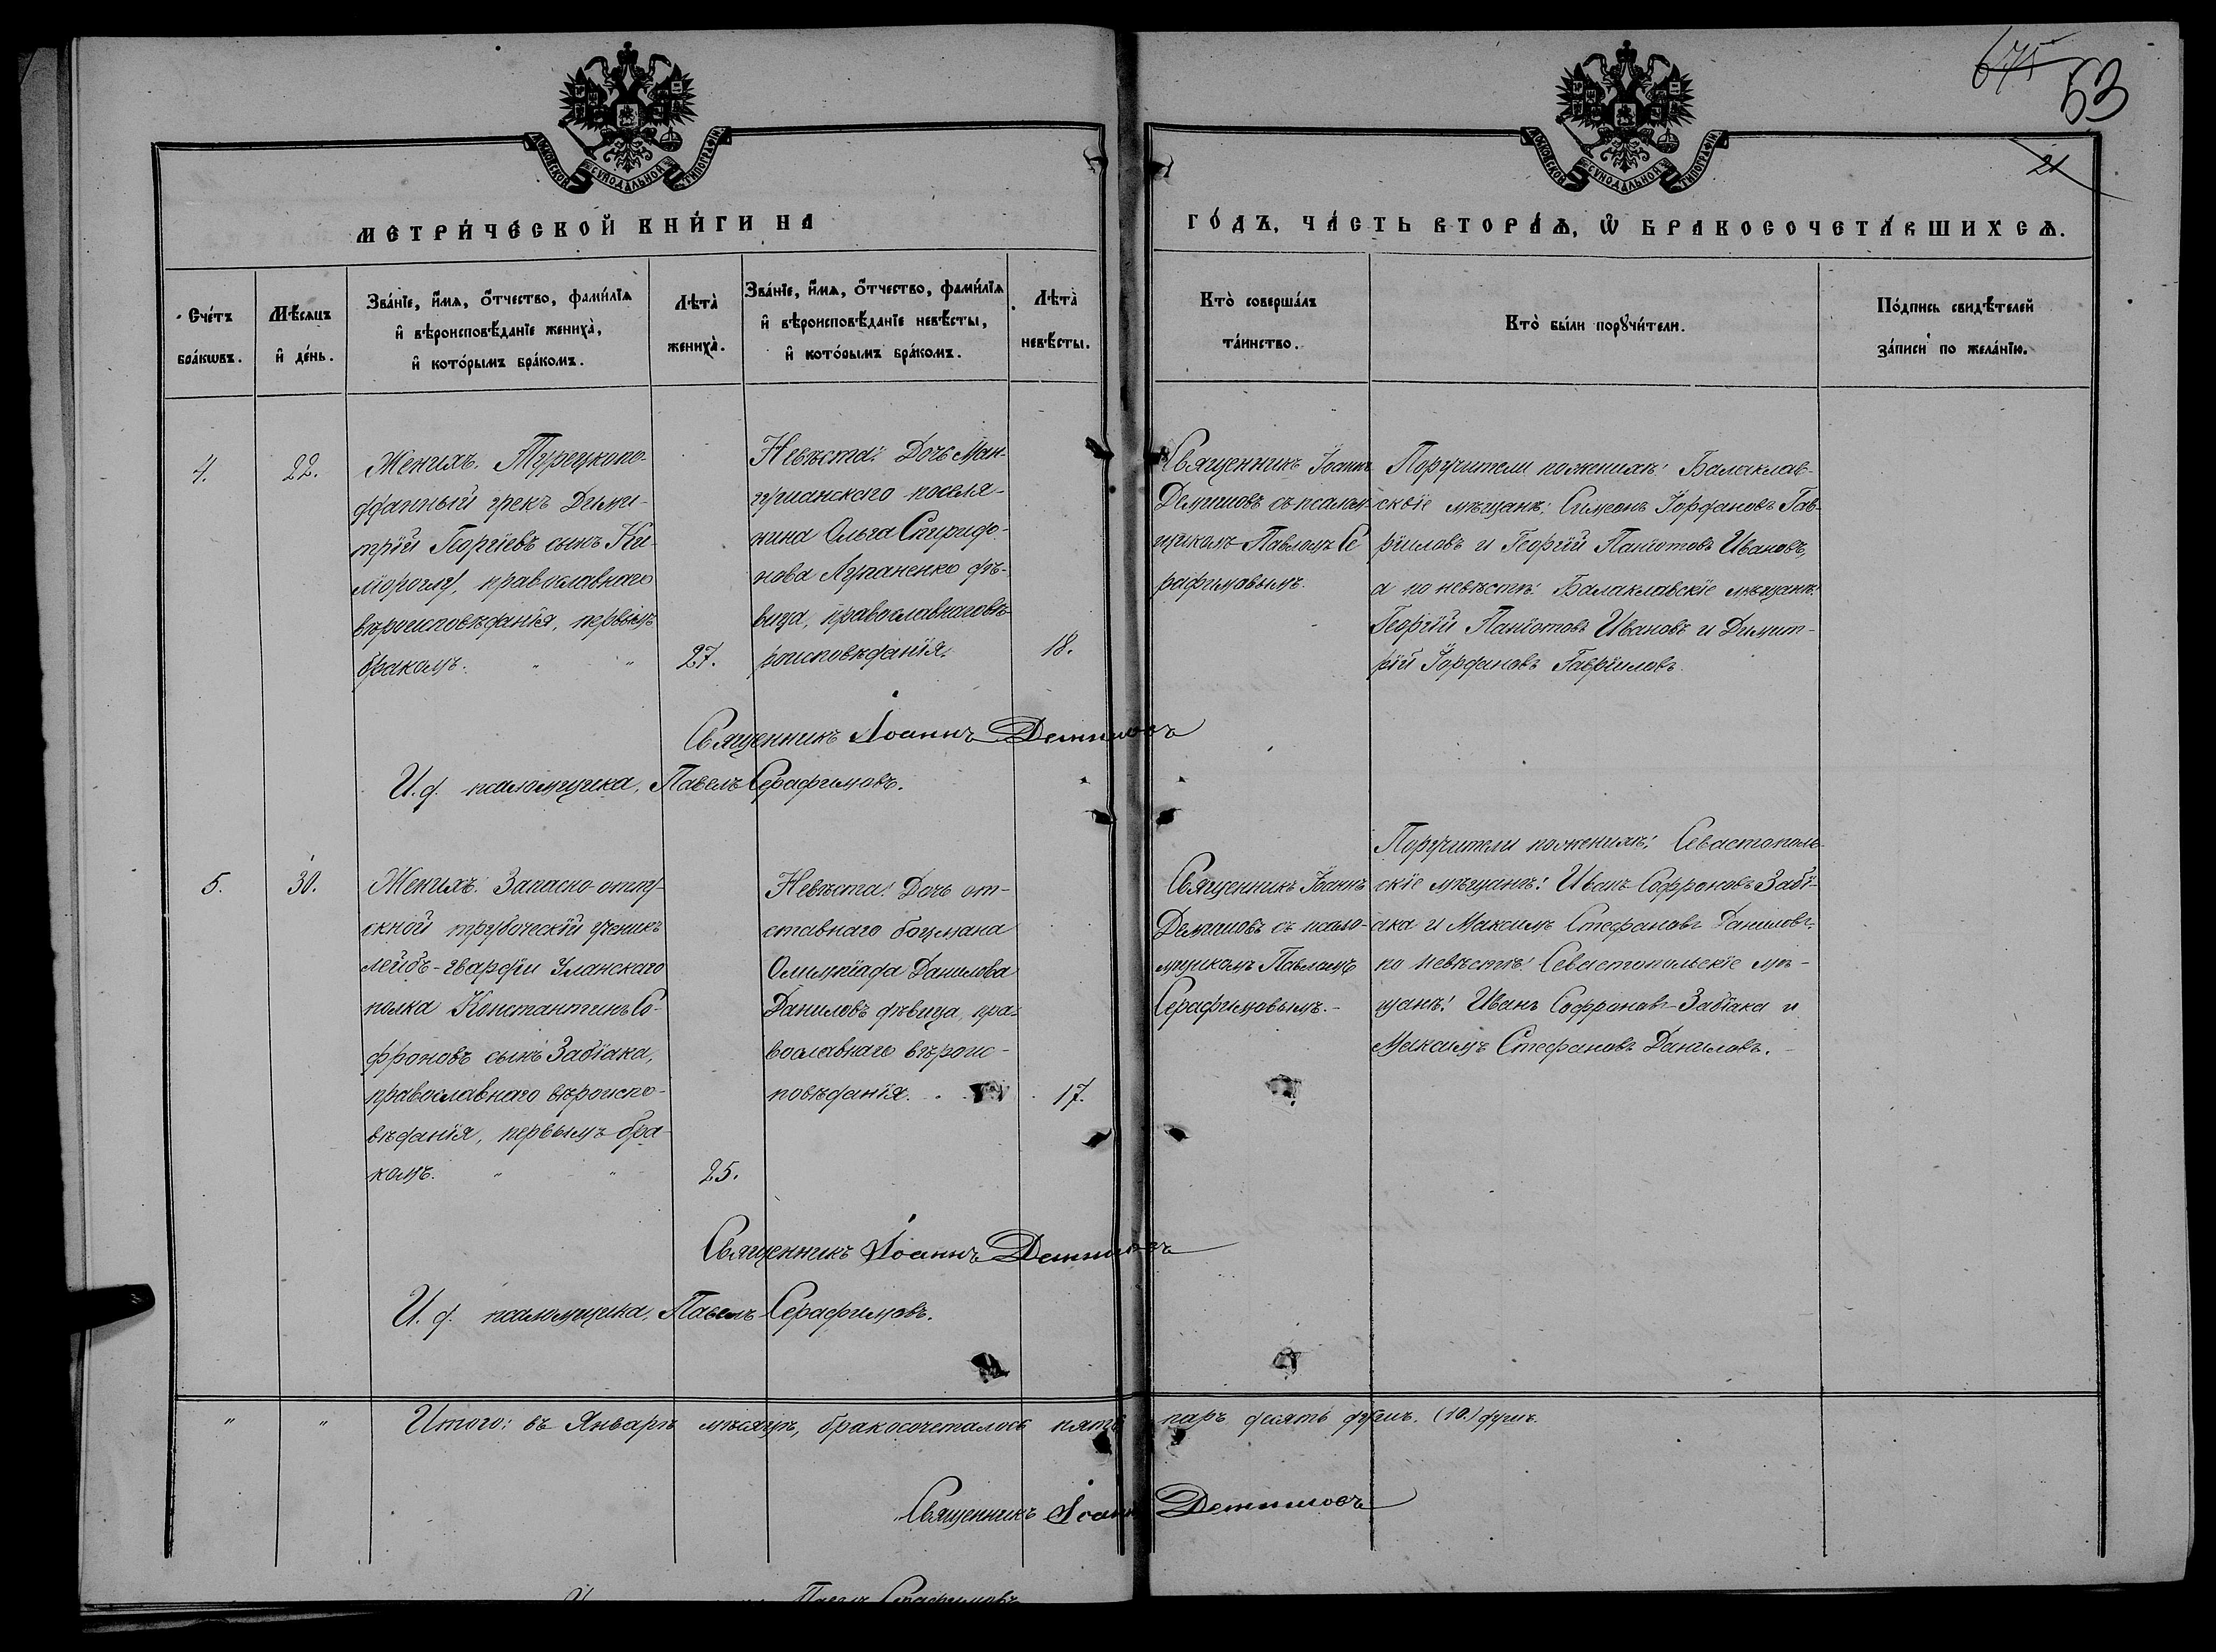 675
53
21
МОСКОВСКОЙ СѴНОДАЛЬНОЙ ТИПОГРАФІИ
МОСКОВСКОЙ СѴНОДАЛЬНОЙ ТИПОГРАФІИ
МЕТРИ́ЧЕСКОЙ КНИ́ГИ НА
ГО́ДЪ, ЧА́СТЬ ВТОРА́Ѧ, Ѡ҆ БРАКОСОЧЕТА́ВШИХСѦ.
Сче́тъ
бра́кѡвъ.
Мѣ́сѧцъ
и҆ де́нь.
Зва́нїе, и҆́мѧ, ѻ҆́тчество, фамѝлїѧ
и҆ вѣроисповѣ́данїе жениха̀,
и҆ кото́рымъ бра́комъ.
Лѣта̀
жениха̀.
Зва́нїе, и҆́мѧ, ѻ҆́тчество, фамѝлїѧ
и҆ вѣроисповѣ́данїе невѣ́сты,
и҆ кото́рымъ бра́комъ.
Лѣта̀
невѣ́сты.
Кто̀ соверша́лъ
та́инство.
Кто̀ бы́ли порꙋчи́тели.
По́дпись свидѣ́телей
за́писи по жела́нїю.
4.
22.
Женихъ: Турецкопо-
дданный грекъ Дими-
трій Георгіевъ сынъ
православнаго
вѣроисповѣданія, первымъ
бракомъ. " "
27.
Невѣста: Дочь Ман-
гушскаго поселя-
нина Ольга Спиридо-
нова Луганенко дѣ-
вица, православнаго вѣ-
роисповѣданія.
18.
Священникъ Іоаннъ
Демишовъ съ псалом-
щикомъ Павломъ Се
рафимовымъ.
Поручители по женихѣ: Балаклав-
скіе мѣщане: Симеонъ Іордановъ Гав-
рииловъ и Георгій Панаіотовъ Ивановъ,
а по невѣстѣ: Балаклавскіе мѣщане:
Георгій Панаіотовъ Ивановъ и Димит-
рій Іордановъ Гаврииловъ.
Священникъ Іоаннъ Демишовъ
И. д. псаломщика, Павелъ Серафимовъ.
5.
30.
Женихъ: Запасно-отпу-
скной трубаческій ученикъ
лейбъ-гвардіи Уланскаго
полка Константинъ Со-
фроновъ сынъ Забіака,
православнаго вѣроиспо-
вѣданія, первымъ бра-
комъ. " "
25.
Невѣста: Дочь от-
ставнаго боцмана
Олимпіада Данилова
Даниловъ дѣвица, пра-
вославнаго вѣроис-
повѣданія.
17.
Священникъ Іоаннъ
Демишовъ съ псало-
мщикомъ Павломъ
Серафимовымъ.-
Поручители по женихѣ: Севастополь-
скіе мѣщане: Иванъ Софроновъ Забі-
ака и Максимъ Стефановъ Даниловъ,
по невѣстѣ: Севастопольскіе мѣ-
щане: Иванъ Софроновъ Забіака и
Максимъ Стефановъ Даниловъ.-
Священникъ Іоаннъ Демишовъ
И. д. псаломщика, Павелъ Серафимовъ.
" " Итого: въ Январѣ мѣсяцѣ, бракосочеталось пять паръ десять душъ. (10.) душъ.
Священникъ Іоаннъ Демишовъ
Павелъ Серафимовъ